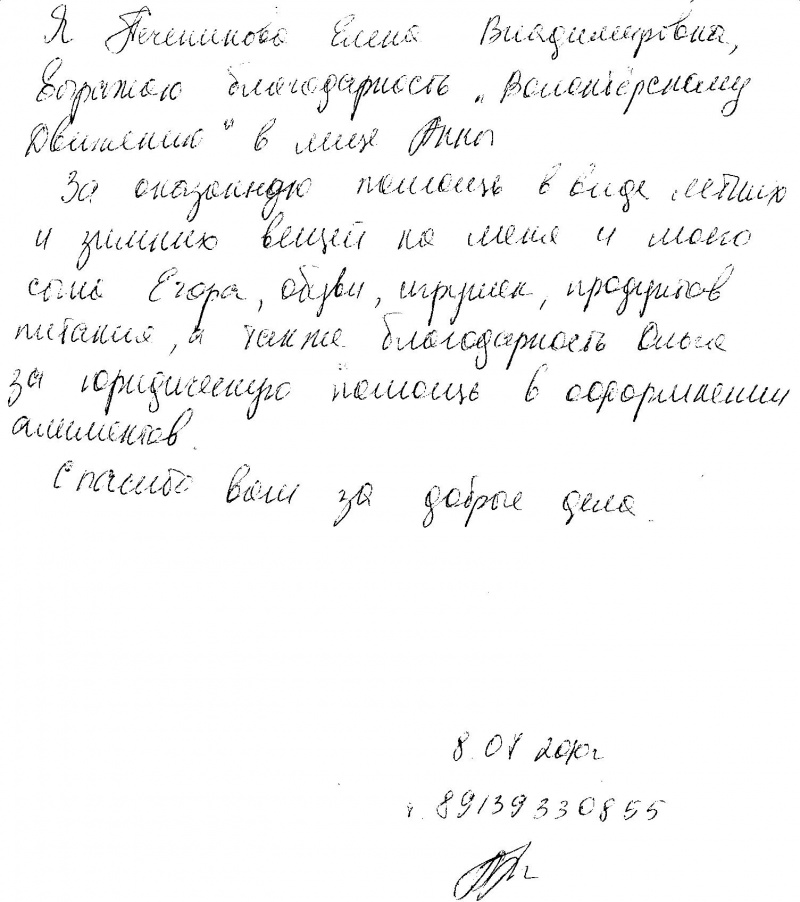 Я Печенинова Елена Владимировна,
Выражаю благодарность „Волонтёрскому
Движению" в лице Анны
За оказанную помощь в виде летних
и зимних вещей на меня и моего
сына Егора, обуви, игрушек, продуктов
питания, а также благодарность Ольге
за юридическую помощь в оформлении
алиментов.
Спасибо вам за добрые дела.
8.04 2010г
т. 89139330855